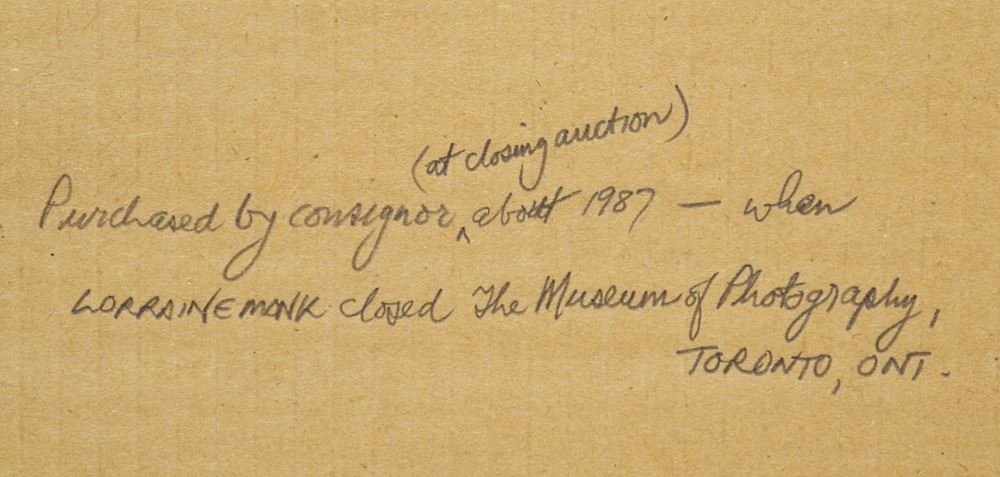 (at closing auction)
Purchased by consignor ‸ about 1987 — when
LORRAINE MONK closed The Museum of Photography,
TORONTO, ONT.